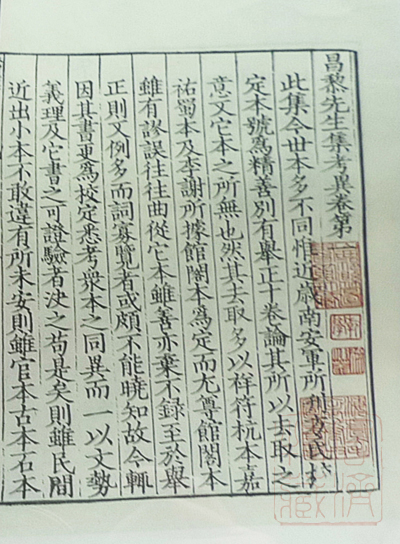 昌黎先生集考異卷第
此集今世本多不同惟近歲南安軍所刊方氏校
定本號爲精善別有舉正十卷論其所以去取之
意又它本之所無也然其去取多以祥符杭本嘉
祐蜀本及李謝所據館閣本爲定而尤尊館閣本
雖有謬誤往往曲從它本雖善亦棄不錄至於舉
正則又例多而詞寡覽者或頗不能曉知故今輒
因其書更爲校定悉考衆本之同異而一以文勢
義理及它書之可證驗者決之苟是矣則雖民間
近出小本不敢違有所未安則雖官本古本石本